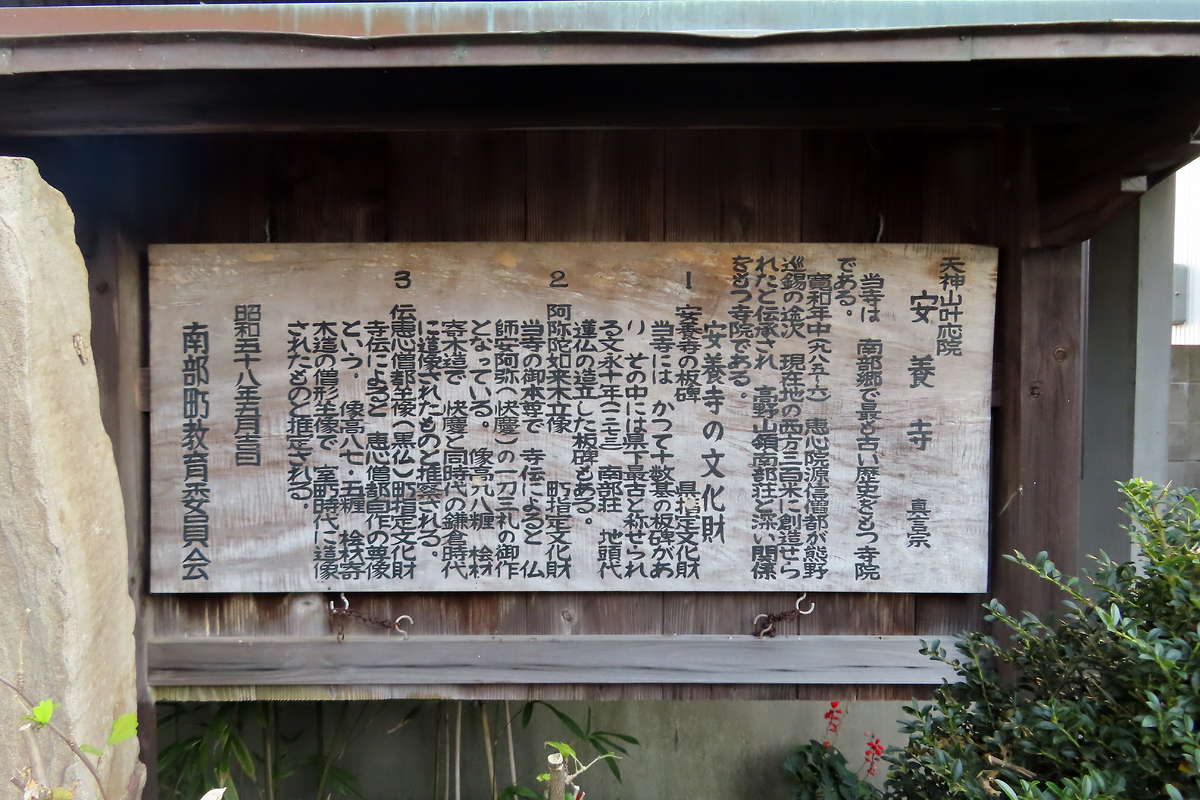 天神山叶応院
安養寺 真言宗
当寺は 南部郷で最も古い歴史をもつ寺院
である。
寛和年中(九八五〜六) 恵心院源信僧都が熊野
巡錫の途次 現在地の西方三百米に創造せら
れたと伝承され 高野山領南部荘と深い関係
をもつ寺院である。
安養寺の文化財
1 安養寺の板碑 県指定文化財
当寺には かつて十数基の板碑があ
り その中には県下最古と称せられ
る文永十年(一二七三) 南部荘 地頭代
蓮仏の造立した板碑もある。
2 阿弥陀如来木立像 町指定文化財
当寺の御本尊で 寺伝によると 仏
師安阿弥(快慶)の一刀三礼の御作
となっている。 像高九八糎 桧材
寄木造で 快慶と同時代の鎌倉時代
に造像されたものと推察される。
3 伝恵心僧都坐像(黒仏)町指定文化財
寺伝によると 恵心僧都自作の尊像
という。 像高八七・五糎 桧材寄
木造の僧形坐像で 室町時代に造像
されたものと推定される。
昭和五十八年五月吉日
南部町教育委員会